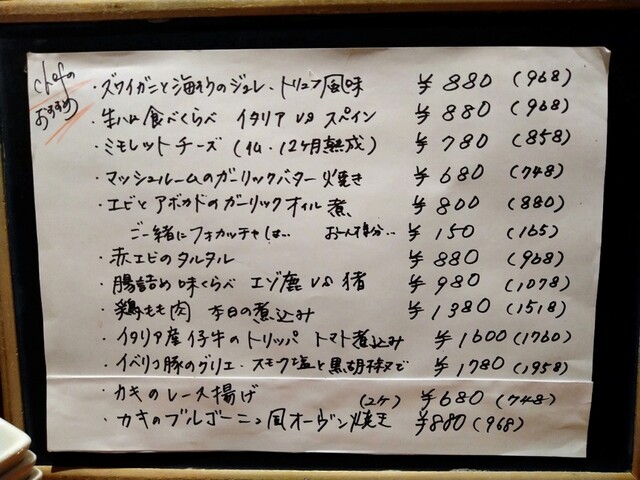 chefの
おすすめ
・ズワイガニと海老のジュレ・トリュフ風味 ¥880 (968)
・生ハム食べくらべ イタリア VS スペイン ¥880 (968)
・ミモレットチーズ (仏・12ヶ月熟成) ¥780 (858)
・マッシュルームのガーリックバター焼き ¥680 (748)
・エビとアボカドのガーリックオイル煮 ¥800 (880)
ご一緒にフォカッチャは… お一人様分… ¥150 (165)
・赤エビのタルタル ¥880 (968)
・腸詰め味くらべ エゾ鹿 VS 猪 ¥980 (1078)
・鶏もも肉 本日の煮込み ¥1380 (1518)
・イタリア産仔牛のトリッパ トマト煮込み ¥1600 (1760)
・イベリコ豚のグリエ・スモーク塩と黒胡椒で ¥1780 (1958)
・カキのレース揚げ (2ヶ) ¥680 (748)
・カキのブルゴーニュ風オーヴン焼き ¥880 (968)